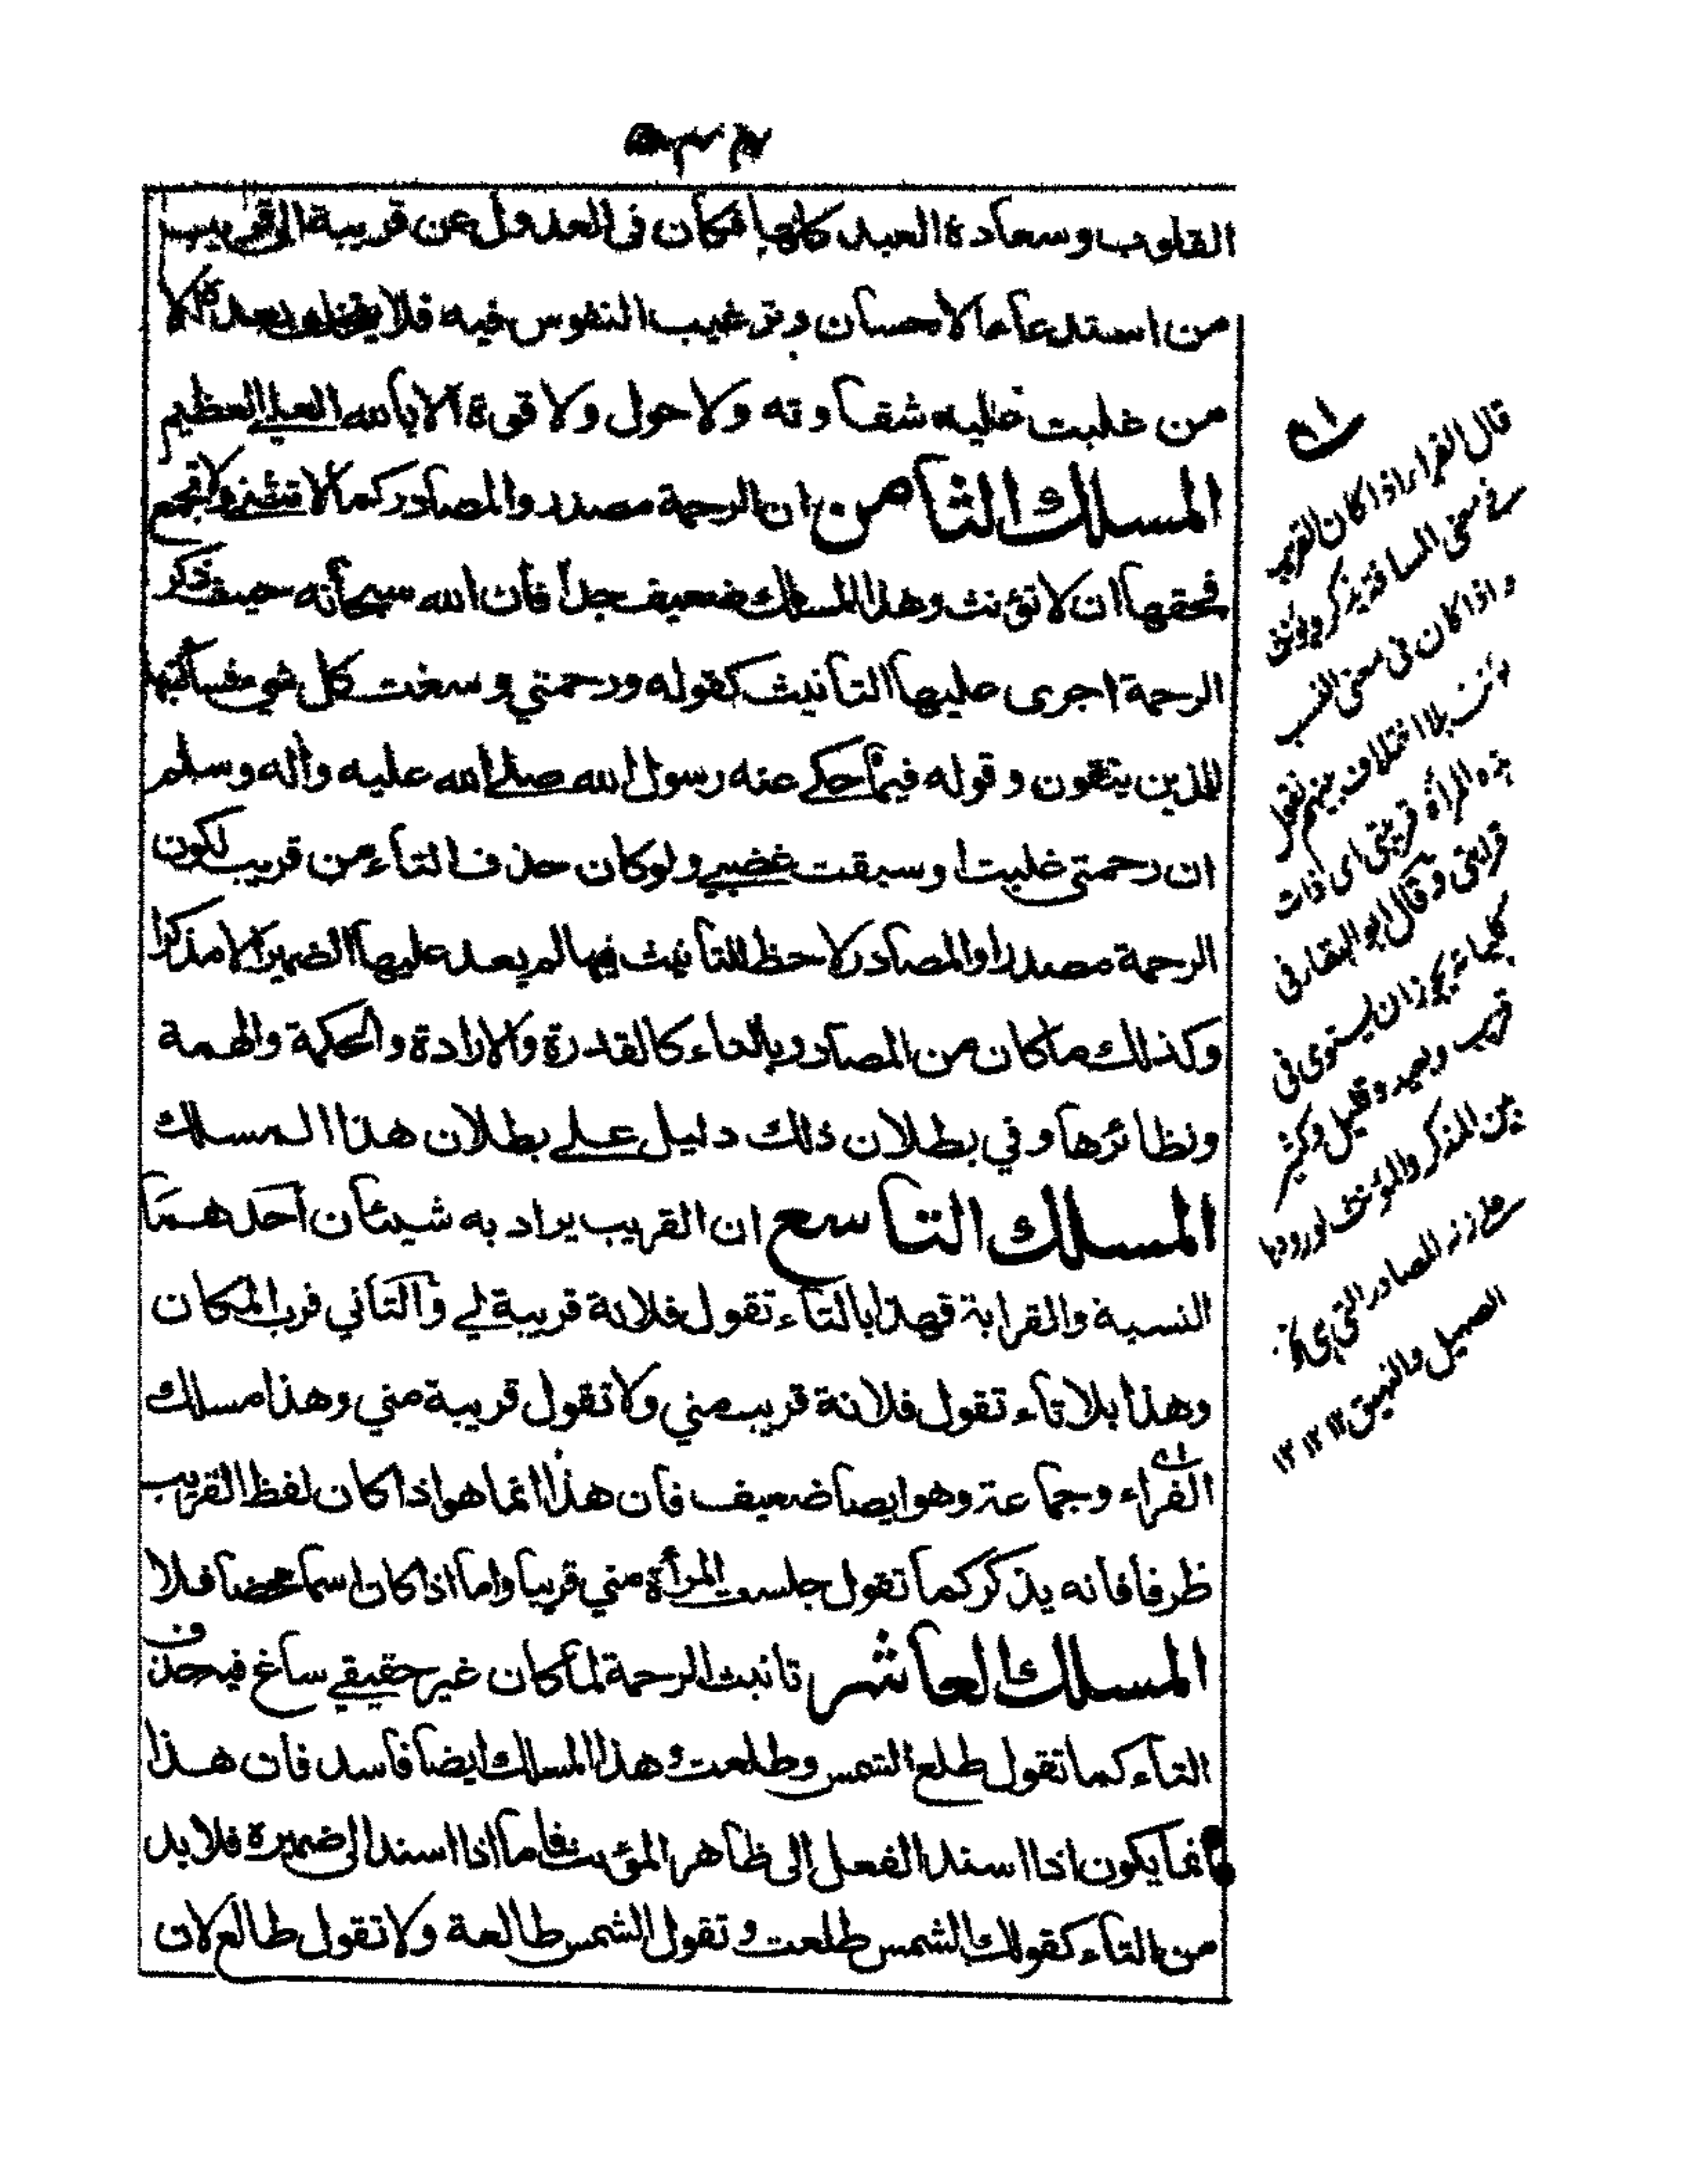 القلوب وسعادة العبد كلها فكان في العدول عن قريبة الى قريب
من استدعاء الاحسان وترغيب النفوس فيه فلا يتخلف بعده الا
من غلبت عليه شقاوته ولا حول ولا قوة الا بالله العلي العظيم
المسلك الثامن ان الرحمة مصدر والمصادر كما لا تثنى ولا تجمع
فحقها ان لا تؤنث وهذا المسلك ضعيف جدا فان الله سبحانه حيث ذكر
الرحمة اجرى عليها التانيث كقوله ورحمتي وسعت كل شيء فسأكتبها
للذين يتقون وقوله فيما حكى عنه رسول الله صلى الله عليه وآله وسلم
ان رحمتي غلبت او سبقت غضبي ولو كان حذف التاء من قريب لكون
الرحمة مصدرا والمصادر لا حظ للتأنيث فيها لم يعد عليها الضمير الا مذكرا
وكذلك ما كان من المصادر بالهاء كالقدرة والارادة والحكمة والهمة
ونظائرها وفي بطلان ذلك دليل على بطلان هذا المسلك
المسلك التاسع ان القريب يراد به شيئان احدهما
النسبة والقرابة فهذا بالتاء تقول فلانة قريبة لي والثاني قرب المكان
وهذا بلا تاء تقول فلانة قريب مني ولا تقول قريبة مني وهذا مسلك
الفراء وجماعة وهو ايضا ضعيف فان هذا انما هو اذا كان لفظ القريب
ظرفا فانه يذكر كما تقول جلست المرأة مني قريبا واما اذا كان اسما محضا فلا
المسلك العاشر تانيث الرحمة لما كان غير حقيقي ساغ فيه حذف
التاء كما تقول طلع الشمس وطلعت وهذا المسلك ايضا فاسد فان هذا
انما يكون اذا اسند الفعل الى ظاهر المؤنث فاما اذا اسند الى ضميره فلا بد
من التاء كقولك الشمس طلعت وتقول الشمس طالعة ولا تقول طالع لان
قال الفراء اذا كان القريب
في معنى المسافة يذكر ويؤنث
واذا كان في معنى النسب
يؤنث بلا اختلاف بينهم تقول
هذه المرأة قريبتي اي ذات
قرابتي وقال ابو البقاء في
كلياته يجوز ان يستوى في
قريب وبعيد وقليل وكثير
بين المذكر والمؤنث لورودها
على زنة المصادر التي هي كالـ
الصهيل والنهيق ١٢